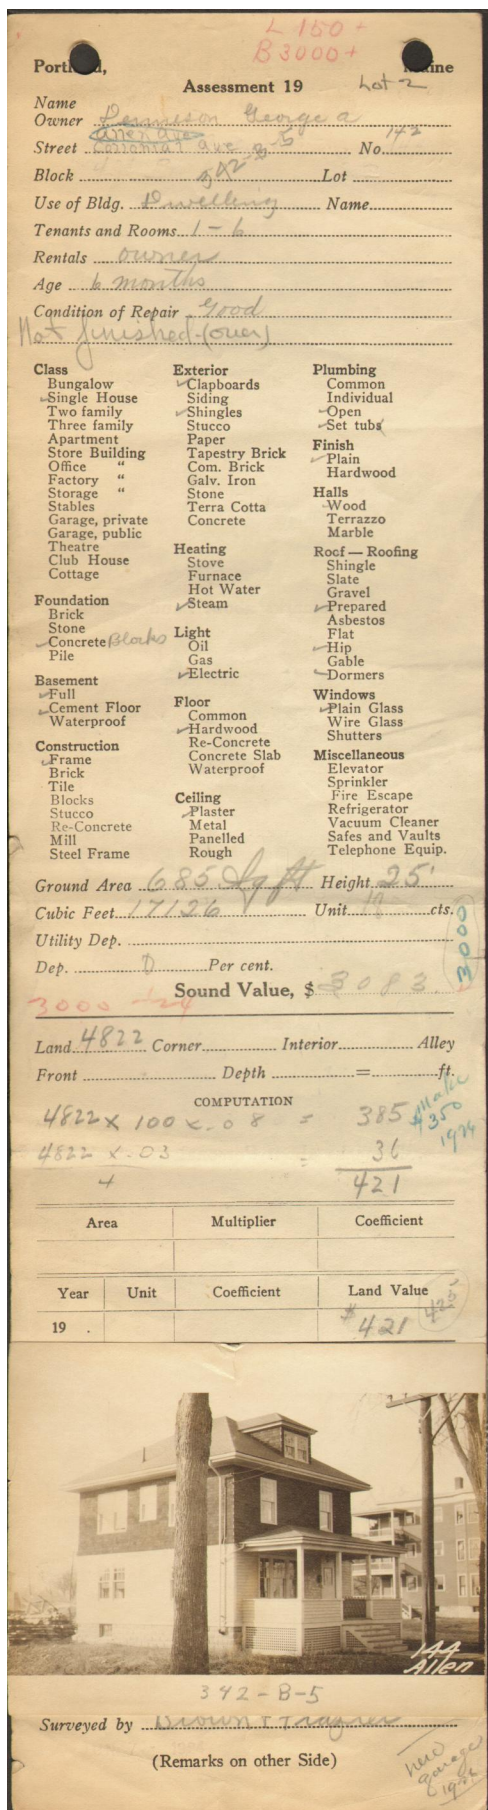 L 150+
B 3000+
Portland, Maine
Assessment 19 Lot 2
Name
Owner Dennison George A
Allen Ave 142
Street Colonial Ave No.
Block 342-B-5 Lot
Use of Bldg. Dwelling Name
Tenants and Rooms 1-6
Rentals owner
Age 6 months
Condition of Repair Good
Not finished-(over)
Class
Bungalow
Single House
Two family
Three family
Apartment
Store Building
Office "
Factory "
Storage "
Stables
Garage, private
Garage, public
Theatre
Club House
Cottage
Foundation
Brick
Stone
Concrete Blocks
Pile
Basement
Full
Cement Floor
Waterproof
Construction
Frame
Brick
Tile
Blocks
Stucco
Re-Concrete
Mill
Steel Frame
Exterior
Clapboards
Siding
Shingles
Stucco
Paper
Tapestry Brick
Com. Brick
Galv. Iron
Stone
Terra Cotta
Concrete
Heating
Stove
Furnace
Hot Water
Steam
Light
Oil
Gas
Electric
Floor
Common
Hardwood
Re-Concrete
Concrete Slab
Waterproof
Ceiling
Plaster
Metal
Panelled
Rough
Plumbing
Common
Individual
Open
Set tubs
Finish
Plain
Hardwood
Halls
Wood
Terrazzo
Marble
Roof — Roofing
Shingle
Slate
Gravel
Prepared
Asbestos
Flat
Hip
Gable
Dormers
Windows
Plain Glass
Wire Glass
Shutters
Miscellaneous
Elevator
Sprinkler
Fire Escape
Refrigerator
Vacuum Cleaner
Safes and Vaults
Telephone Equip.
Ground Area 685 Sq ft Height 25'
Cubic Feet 17126 Unit 18 cts.
Utility Dep.
Dep. 0 Per cent.
3000
Sound Value, $ 3083.
3000 -24
Land 4822 Corner Interior Alley
Front Depth = ft.
COMPUTATION
4822 x 100 x .08 = 385
4822 x .03 = 36
4 421
Make
$350
1926
Area Multiplier Coefficient
Year Unit Coefficient Land Value
19 . $421 425
144
Allen
342-B-5
Surveyed by Brown & Frazier
(Remarks on other Side)
new
garage
1926